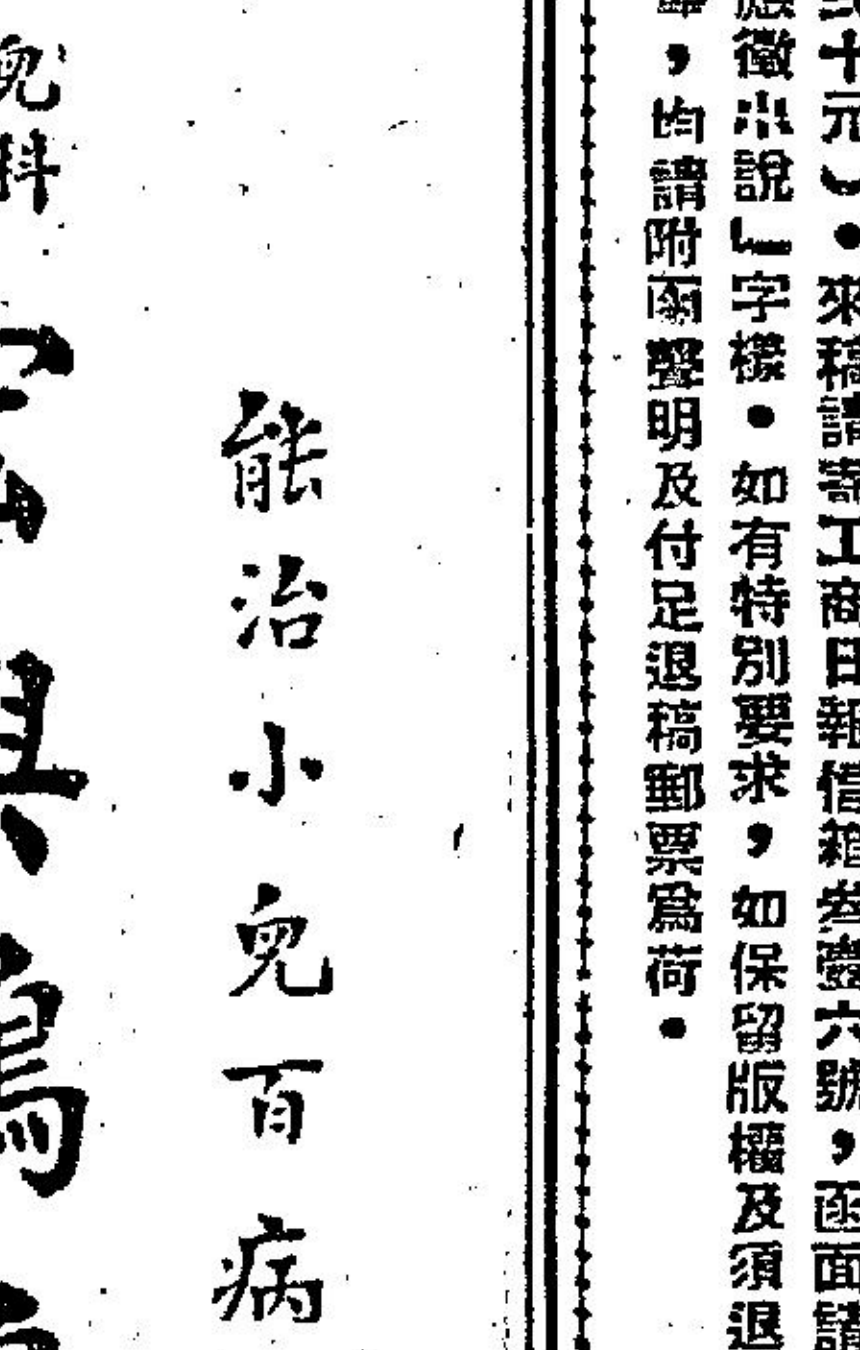 十元）。來稿請寄工商日報信箱叁壹六號，函面請
應徵小說」字樣。如有特別要求，如保留版權及須退
，均請附函聲明及付足退稿郵票爲荷。
能治小兒百病
兒科